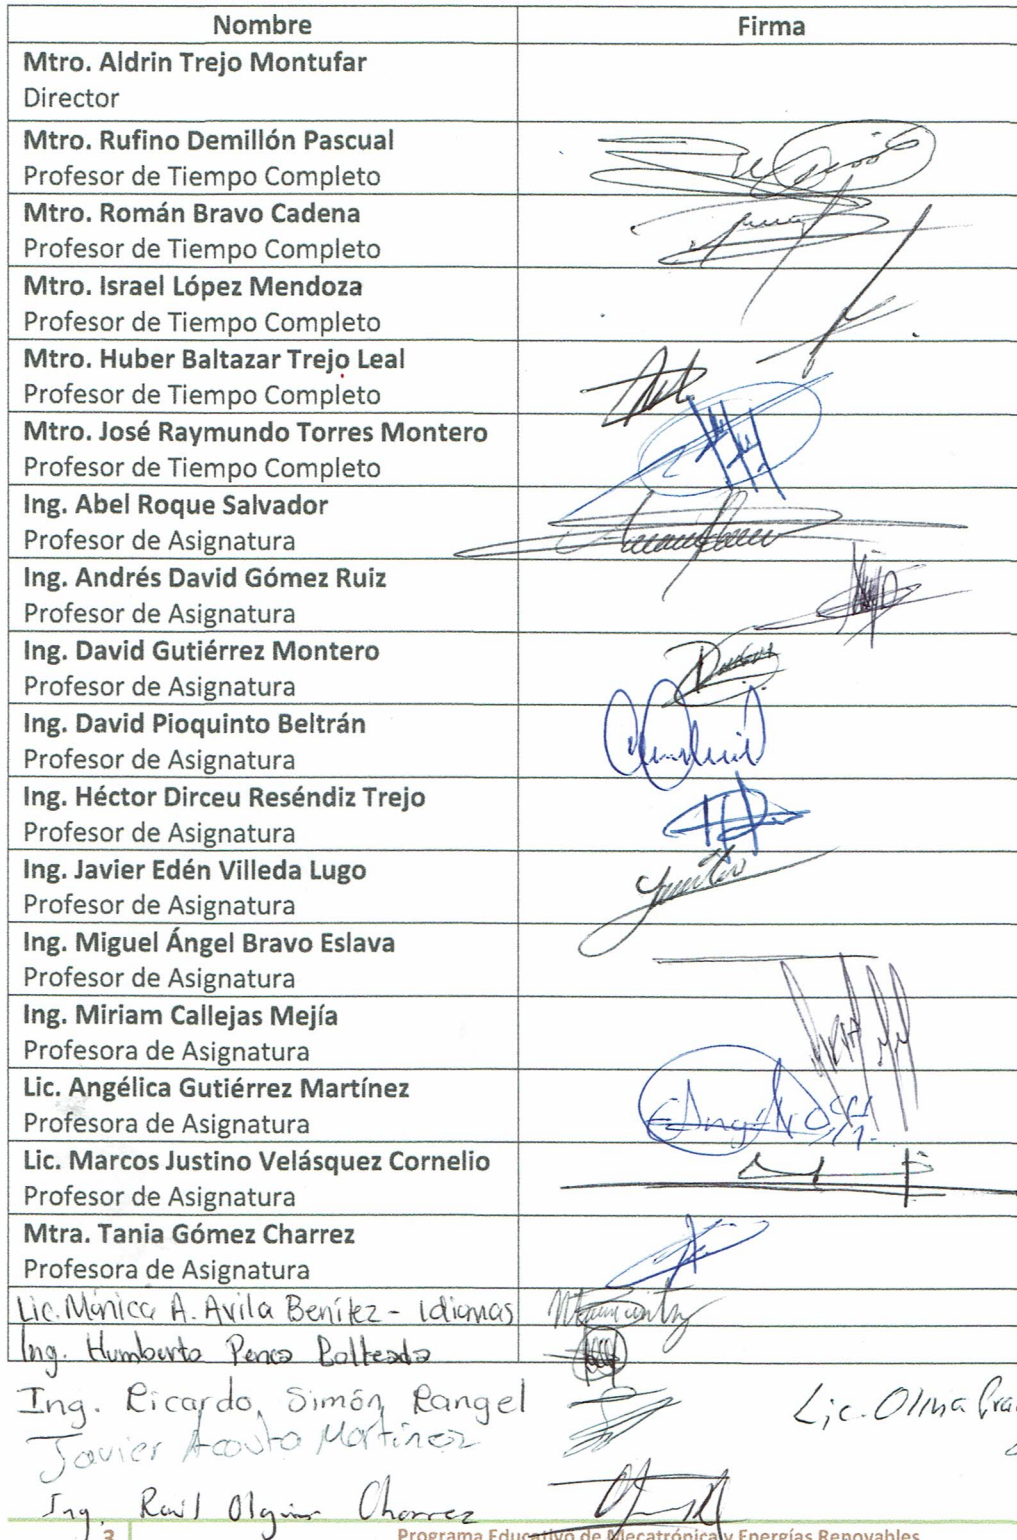 Nombre Firma
Mtro. Aldrin Trejo Montufar
Director
Mtro. Rufino Demillón Pascual
Profesor de Tiempo Completo
Mtro. Román Bravo Cadena
Profesor de Tiempo Completo
Mtro. Israel López Mendoza
Profesor de Tiempo Completo
Mtro. Huber Baltazar Trejo Leal
Profesor de Tiempo Completo
Mtro. José Raymundo Torres Montero
Profesor de Tiempo Completo
Ing. Abel Roque Salvador
Profesor de Asignatura
Ing. Andrés David Gómez Ruiz
Profesor de Asignatura
Ing. David Gutiérrez Montero
Profesor de Asignatura
Ing. David Pioquinto Beltrán
Profesor de Asignatura
Ing. Héctor Dirceu Reséndiz Trejo
Profesor de Asignatura
Ing. Javier Edén Villeda Lugo
Profesor de Asignatura
Ing. Miguel Ángel Bravo Eslava
Profesor de Asignatura
Ing. Miriam Callejas Mejía
Profesora de Asignatura
Lic. Angélica Gutiérrez Martínez
Profesora de Asignatura
Lic. Marcos Justino Velásquez Cornelio
Profesor de Asignatura
Mtra. Tania Gómez Charrez
Profesora de Asignatura
Lic. Mónica A. Avila Benítez - Idiomas
Ing. Humberto
Ing. Ricardo Simón Rangel
Lic.
Javier Acosta Martínez
Ing. Raúl Olguin Charrez
3 Programa Educativo de Mecatrónica y Energías Renovables